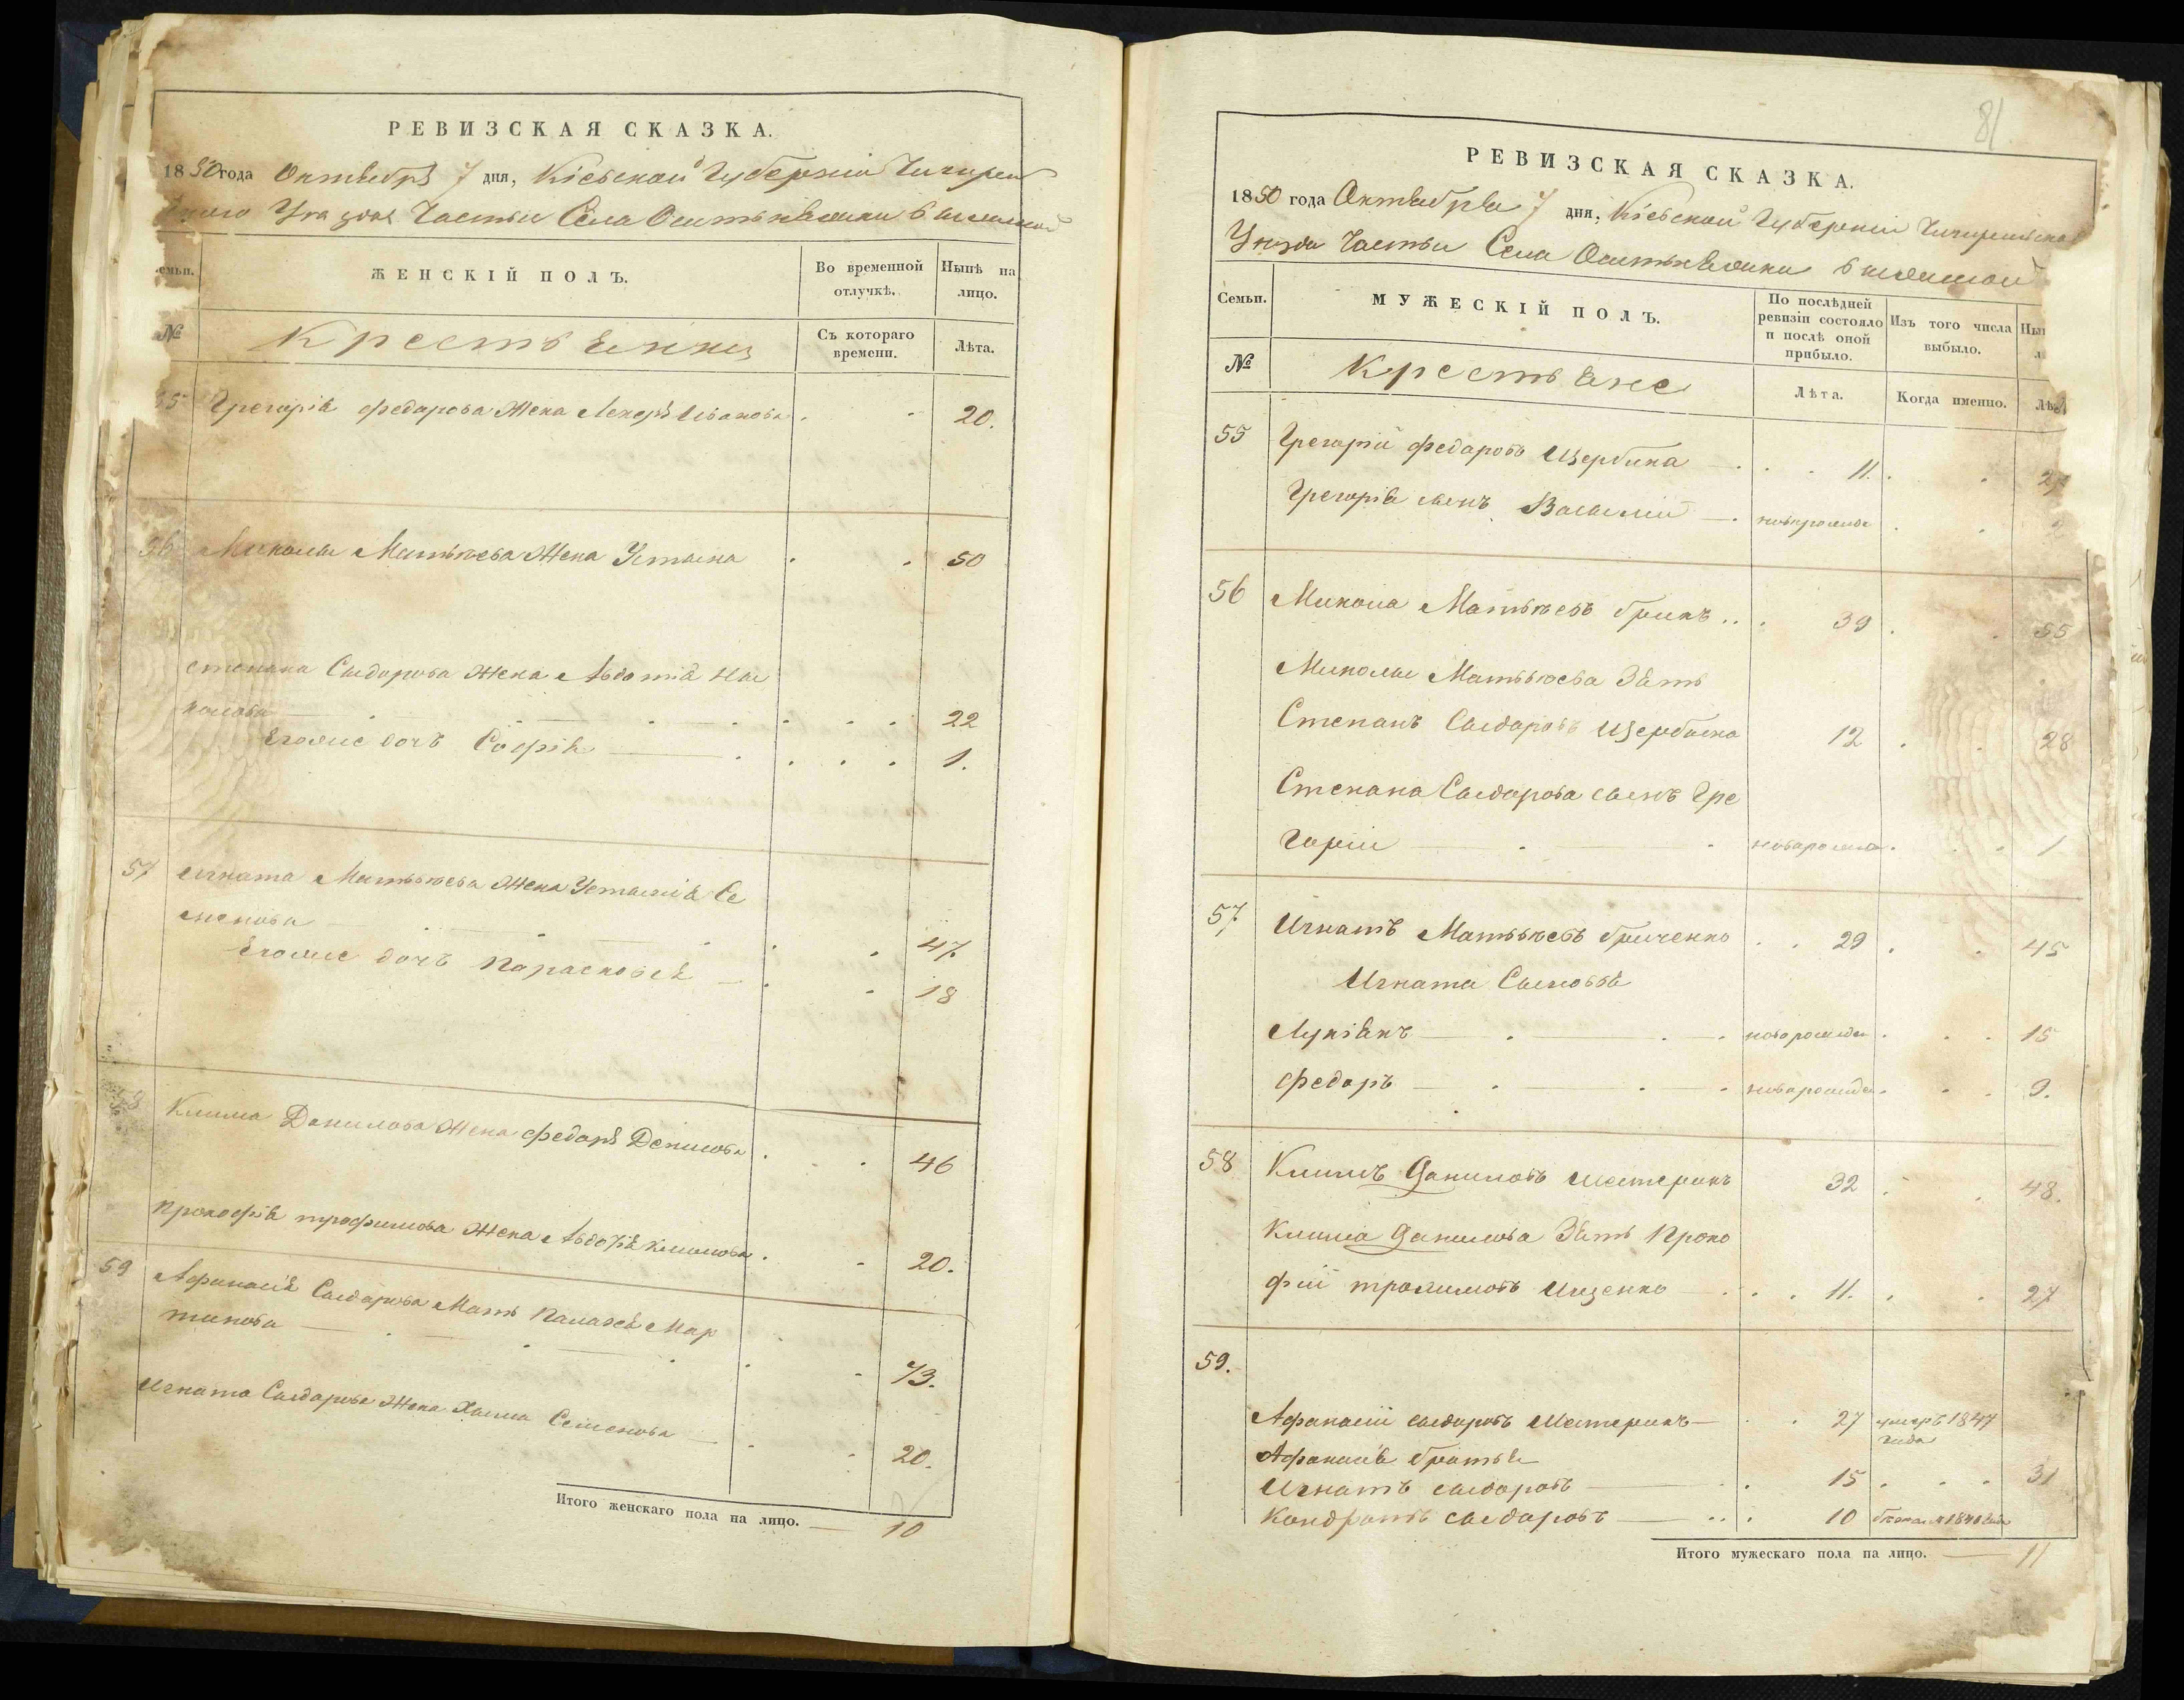 РЕВИЗСКАЯ СКАЗКА.
1850 года Октебря 7 дня, Кіевской Губерніи Чигирен
Уезда Частьи Села
Семьи.
ЖЕНСКІЙ ПОЛЪ.
Во временной отлучкѣ.
Нынѣ на лицо.
№
Крестьянки
Съ котораго времени.
Лѣта.
55 Грегорія Федарова Жена Иванова 20.
56 Миколы Матвѣева Жена Устына 50
Степана Сыдорова Жена Авдотія Ни
колова 22
Его же дочъ Софія 1.
57 Игната Матвѣева Жена Устынія Се
менова 47
Его же дочъ Параскович 18
58 Клима Данилова Жена Федора Денисова 46
Прокофія трофимова Жена Авдотія Климова 20.
59 Афанасія Сыдорова Мать Палажія Мар
тинова 73.
Игната Сыдорова Жена Семенова 20.
Итого женскаго пола на лицо. 10
81
РЕВИЗСКАЯ СКАЗКА.
1850 года Октебря 7 дня, Кіевской Губерніи Чигиринскаго
Уезда Частьи Села
Семьи.
МУЖЕСКІЙ ПОЛЪ.
По послѣдней ревизіи состояло и послѣ оной прибыло.
Изъ того числа выбыло.
Ны
№
Крестьяне
Лѣта.
Когда именно.
Лѣ
55 Грегорій Федаровъ Щербина 11. 27
Грегорія сынъ Васылій новорожде 2
56 Микола Матвѣевъ Грикъ 39 55
Миколы Матвѣева Зять
Степанъ Сыдоровъ Щербына 12 28
Степана Сыдорова сынъ Гре
горій новорожде 1
57 Игнатъ Матвѣевъ Гриченко 29 45
Игната Сыновья
Лукіянъ новорожден 15
Федоръ новорожден 9.
58 Климъ Даниловъ Шестерикъ 32 48.
Клима Данилова Зять Проко
фій трохимовъ Ищенко 11. 27
59.
Афанасій сыдоровъ Шестерикъ 27 умеръ 1847
года
Афанасія братья
Игнатъ сыдоровъ 15 31
Кондратъ сыдоровъ 10 1846 года
Итого мужескаго пола на лицо. 11